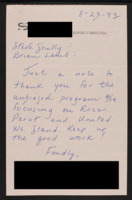 8-23-93
Steve Scully
Brian Lamb:
Just a note to
thank you for the
unbiased program 8/19
focusing on Ross
Perot and United
We Stand. Keep up
the good work
Fondly,